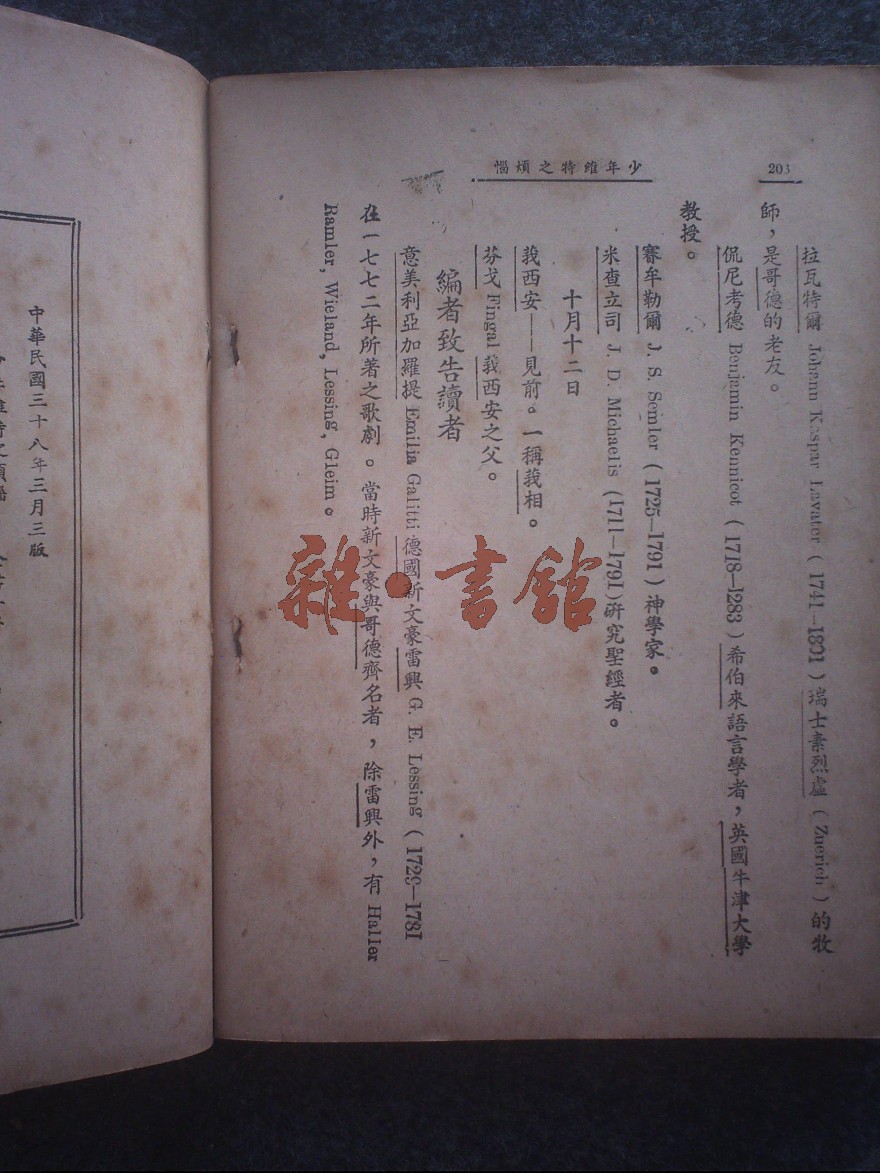 203
少年維特之煩惱
拉瓦特爾 Johann Kaspar Lavater ( 1741—1801 ) 瑞士素烈虛 ( Zuerich ) 的牧
師，是哥德的老友。
侃尼考德 Benjamin Kennicot ( 1718—1283 ) 希伯來語言學者，英國牛津大學
教授。
賽牟勒爾 J. S. Semler ( 1725—1791 ) 神學家。
米查立司 J. D. Michaelis (1711—1791) 研究聖經者。
十月十二日
莪西安——見前。一稱莪相。
芬戈 Fingal 莪西安之父。
編者致告讀者
意美利亞加羅提 Emilia Galitti 德國新文豪雷興 G. E. Lessing ( 1729—1781
在一七七二年所著之歌劇。當時新文豪與哥德齊名者，除雷興外，有 Haller
Ramler, Wieland, Lessing, Gleim。
雜·書館
中華民國三十八年三月三版